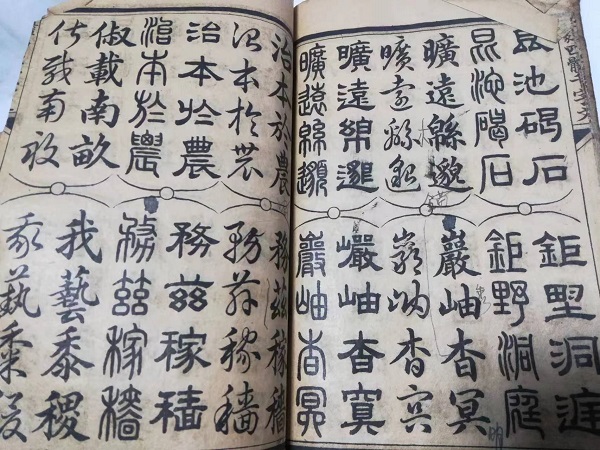 昆池碣石
昆池碣石
曠遠緜邈
曠遠緜邈
曠遠綿邈
曠遠緜邈
鉅野洞庭
鉅野洞庭
巖岫杳冥
巖岫杳冥
巖岫杳冥
巖岫杳冥
治本於農
治本於農
治本於農
治本於農
俶載南畝
俶載南畝
務茲稼穡
務茲稼穡
務茲稼穡
務茲稼穡
我藝黍稷
我藝黍稷